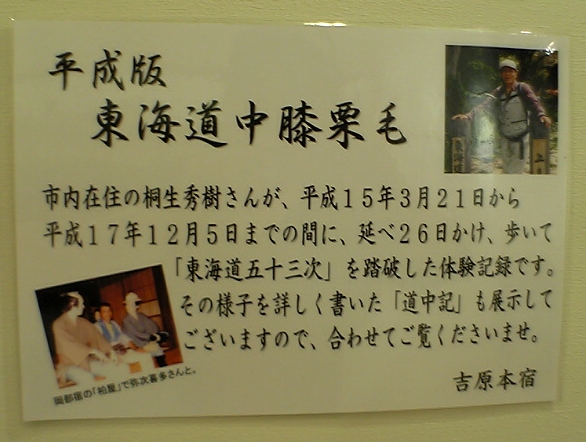 平成版
東海道中膝栗毛
市内在住の桐生秀樹さんが、平成15年3月21日から
平成17年12月5日までの間に、延べ26日かけ、歩いて
「東海道五十三次」を踏破した体験記録です。
その様子を詳しく書いた「道中記」も展示して
ございますので、合わせてご覧くださいませ。
岡部宿の「柏屋」で弥次喜多さんと。
吉原本宿